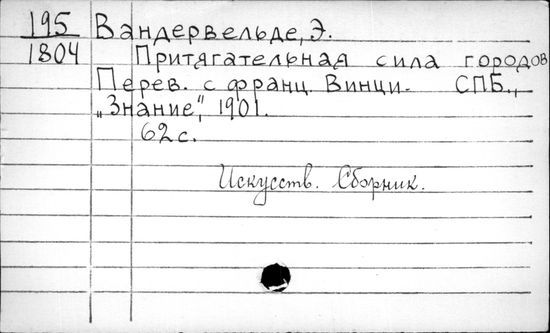 195 Вандервельде, Э.
1804 Притягательная сила городов
Перев. с франц. Винци. СПБ.,
„Знание", 1901.
62 с.
Искусств. Сборник.